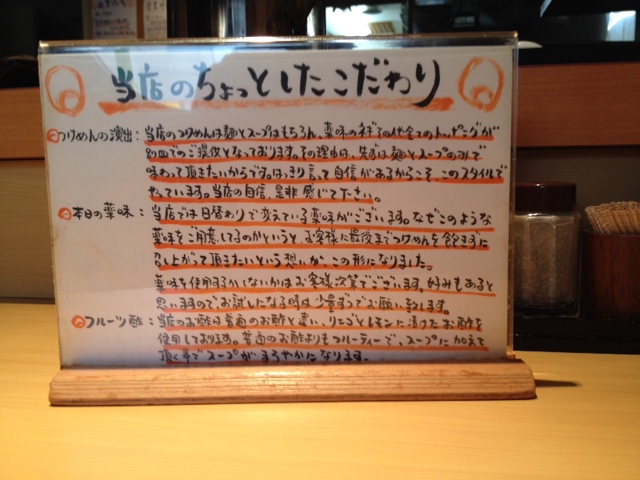 当店のちょっとしたこだわり
つけめんの演出：当店のつけめんは麺とスープはもちろん、薬味のネギその他全てのトッピングが
別皿でのご提供となっております。その理由は、先ずは麺とスープのみで
味わって頂きたいからです。はっきり言って自信があるからこそ、このスタイルで
やっています。当店の自信、是非感じて下さい。
本日の薬味：当店では日替わりで変えている薬味がございます。なぜこのような
薬味をご用意してるのかというと、お客様に最後までつけめんを飽きずに
召し上がって頂きたいという想いが、この形になりました。
薬味を使用するかしないかはお客様次第でございます。好みもあると
思いますのでお試しになる時は少量ずつでお願い致します。
フルーツ酢：当店のお酢は普通のお酢と違い、リンゴとレモンに漬けたお酢を
使用しております。普通のお酢よりもフルーティーで、スープに加えて
頂く事でスープがまろやかになります。